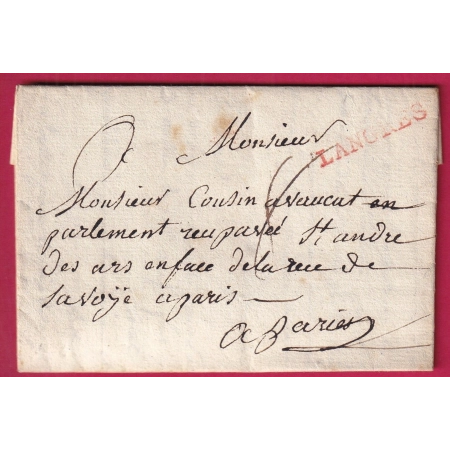 A Monsieur
LANGRES
Monsieur Cousin avaucat en
parlement rue pavée St andre
des ars en face de la rue de
savoÿe a paris
a Paries